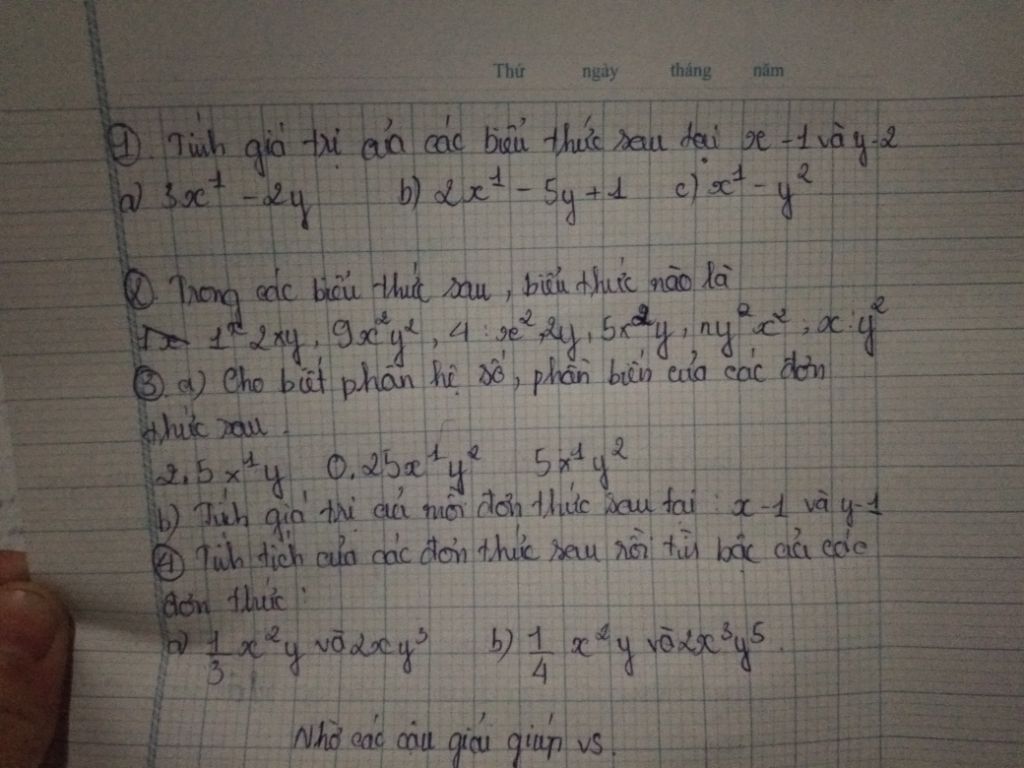 Thứ ngày tháng năm
① Tính giá trị của các biểu thức sau tại x - 1 và y - 2
a) 3x¹ - 2y b) 2x¹ - 5y + 1 c) x¹ - y²
② Trong các biểu thức sau, biểu thức nào là
9x²y², 4 : x², 2y, 5x²y, ny²x², x : y²
③ a) Cho biết phần hệ số, phần biến của các đơn
thức sau.
2,5x¹y 0.25x¹y² 5x¹y²
b) Tính giá trị của mỗi đơn thức sau tại : x - 1 và y - 1
④ Tính tích của các đơn thức sau rồi tìm bậc của các
đơn thức :
a) 1/3 x²y và 2xy³ b) 1/4 x²y và 2x³y⁵.
Nhờ các câu giải giúp vs.